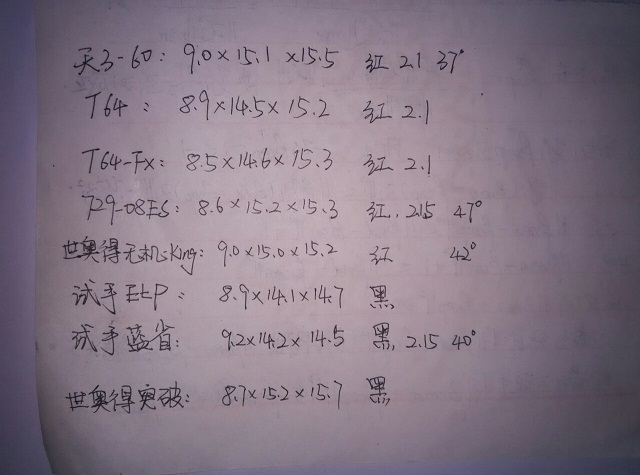 天3-60: 9.0×15.1×15.5 红 2.1 37°
T64: 8.9×14.5×15.2 红 2.1
T64-Fx: 8.5×14.6×15.3 红 2.1
729-08ES: 8.6×15.2×15.3 红, 2.15 47°
世奥得无机:King: 9.0×15.0×15.2 红 42°
试手ELP: 8.9×14.1×14.7 黑
试手蓝省: 9.2×14.2×14.5 黑, 2.15 40°
世奥得突破: 8.7×15.2×15.7 黑